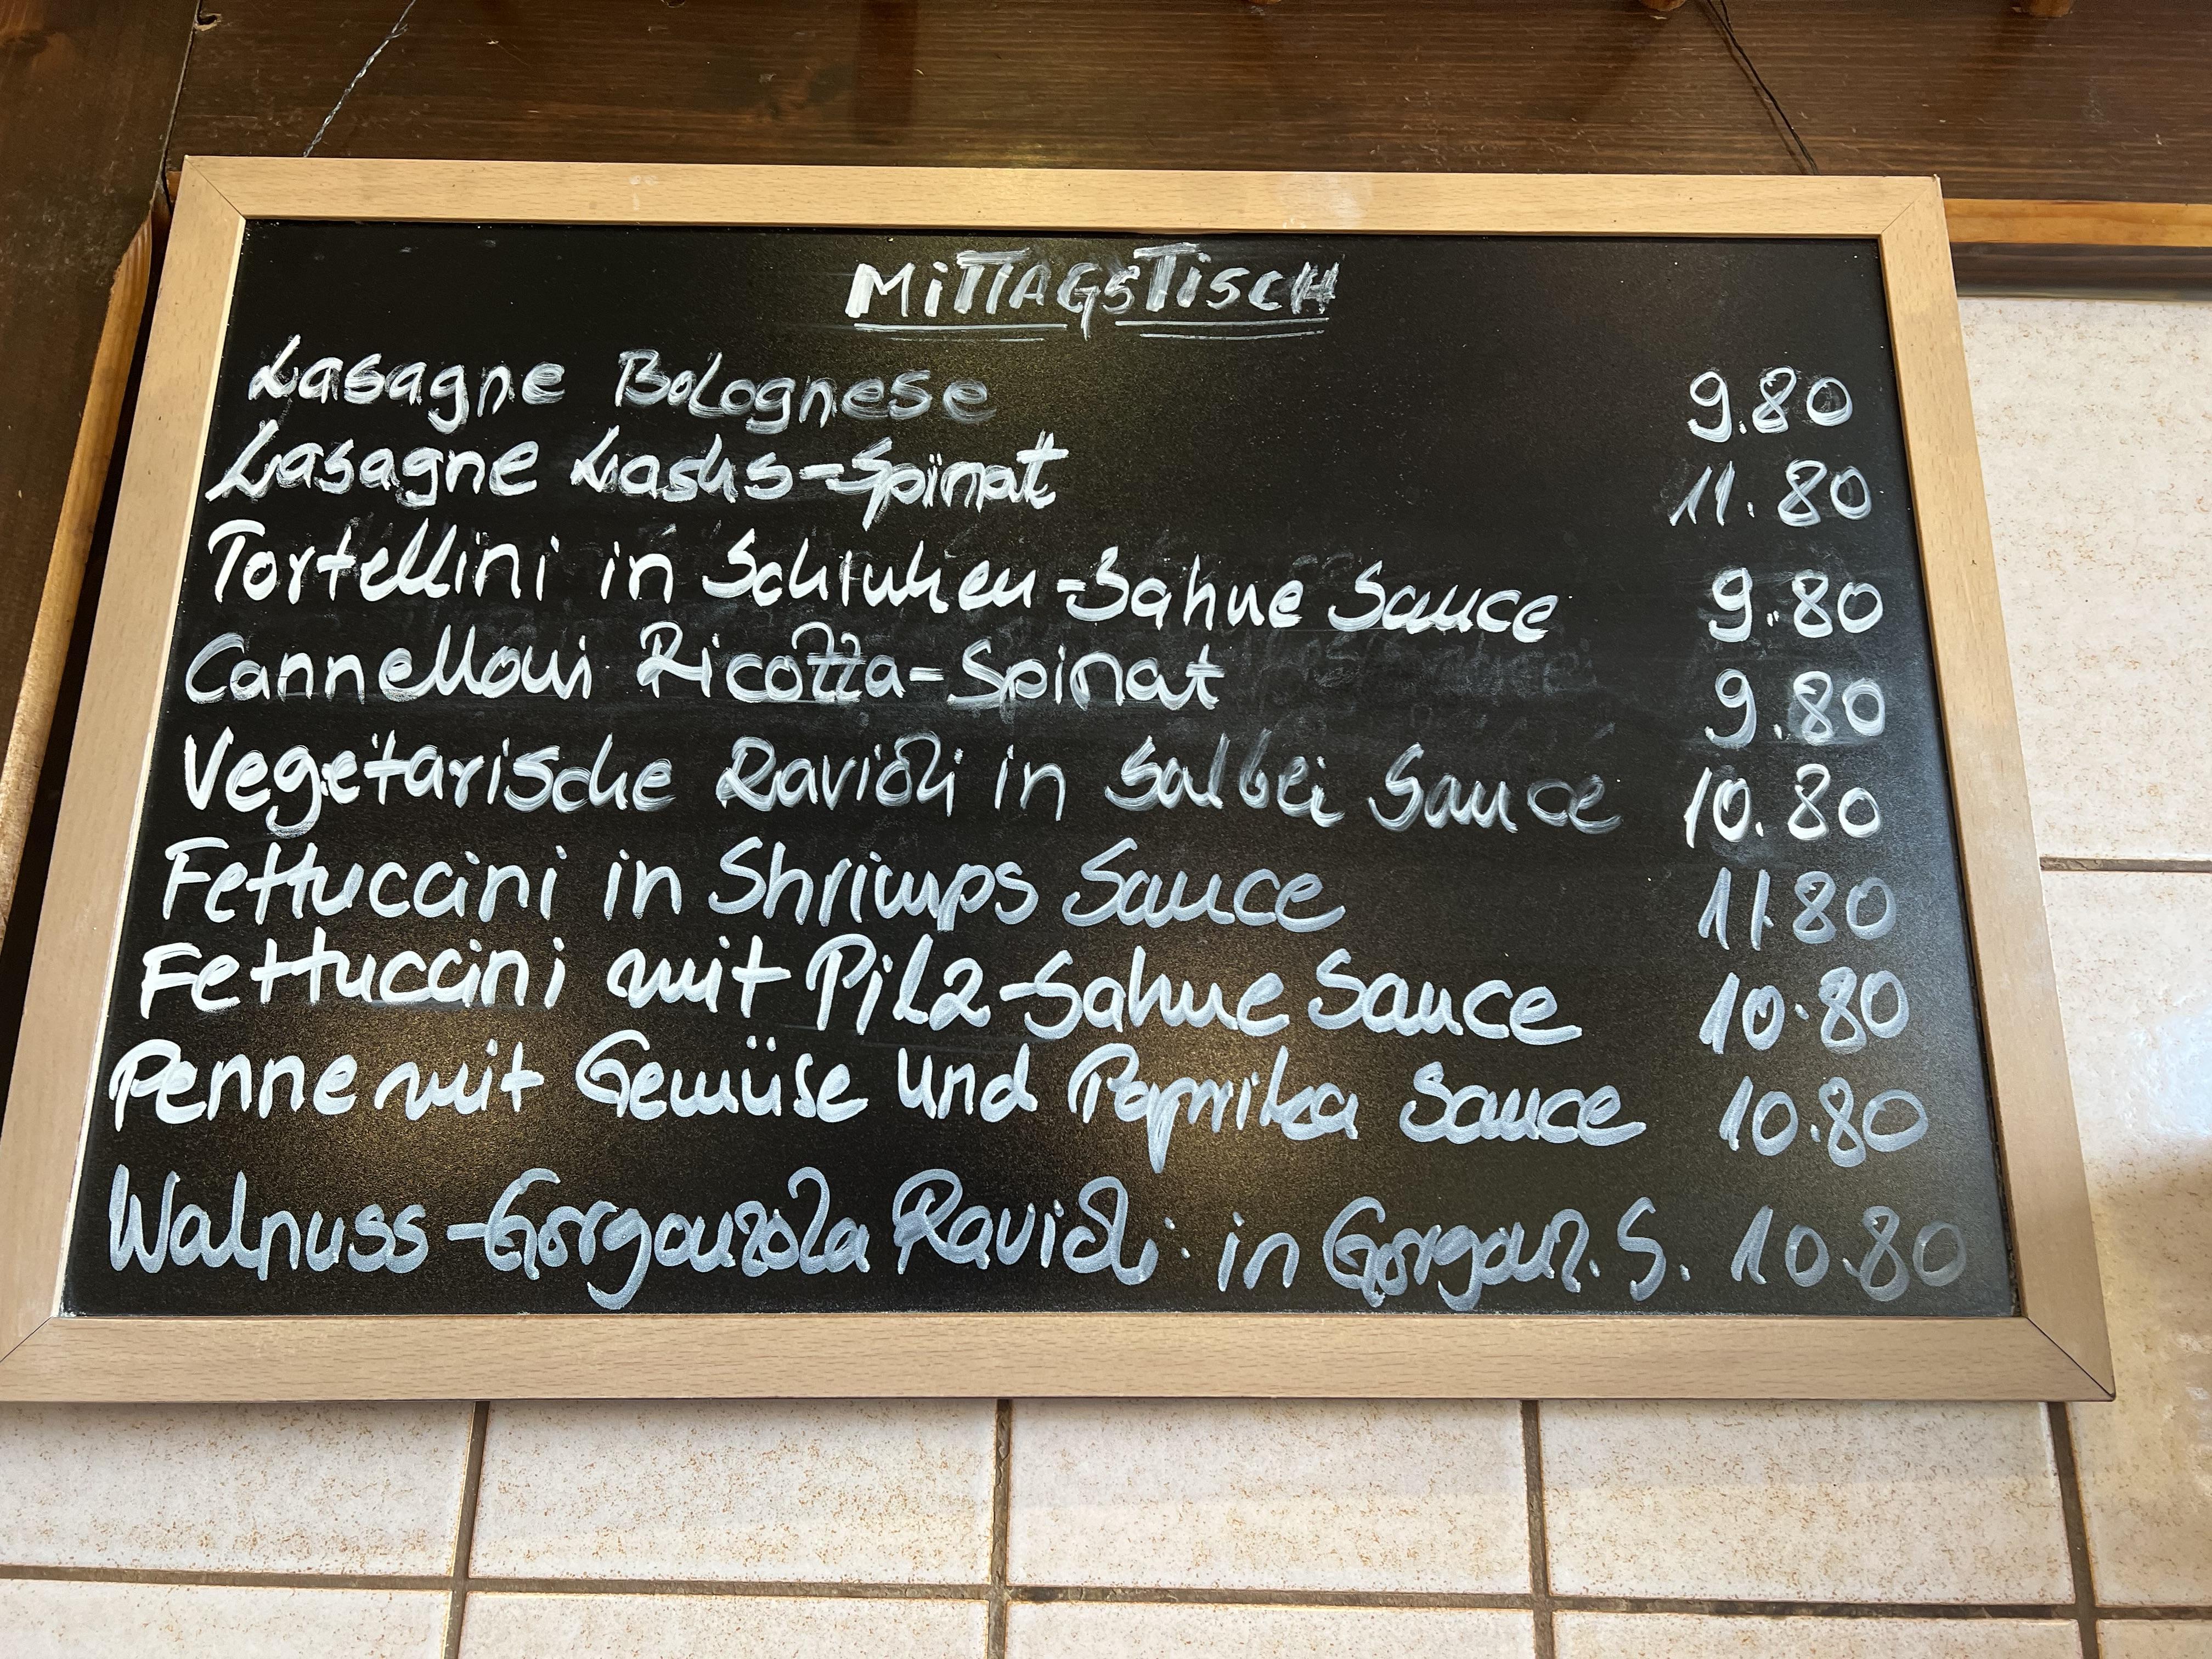 MiTTAGSTiSCH
Lasagne Bolognese 9.80
Lasagne Lachs-Spinat 11.80
Tortellini in Schinken-Sahne Sauce 9.80
Cannelloni Ricotta-Spinat 9.80
Vegetarische Ravioli in Salbei Sauce 10.80
Fettuccini in Shrimps Sauce 11.80
Fettuccini mit Pilz-Sahne Sauce 10.80
Penne mit Gemüse und Paprika Sauce 10.80
Walnuss-Gorgonzola Ravioli in Gorgon. S. 10.80